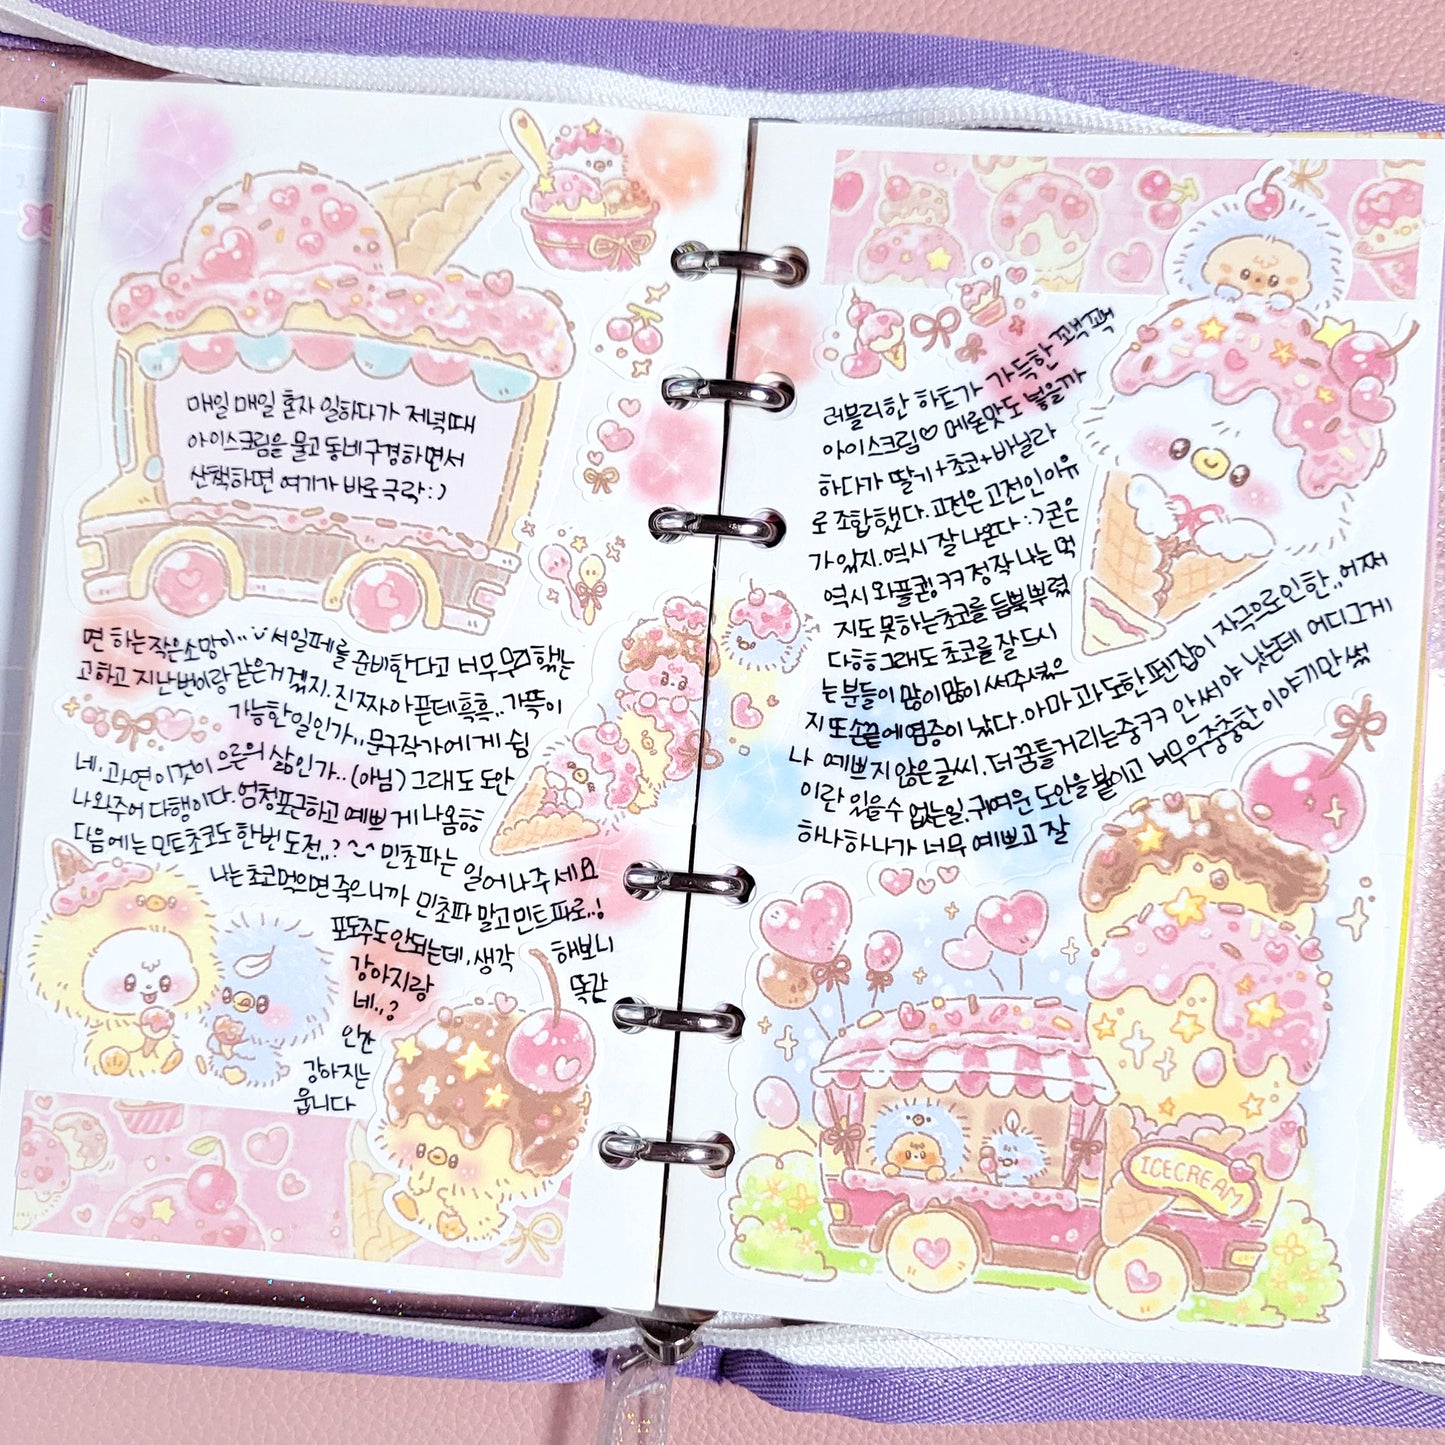 매일 매일 혼자 일하다가 저녁때
아이스크림을 물고 동네구경하면서
산책하면 여기가 바로 극락:)
면 하는 작은 소망이.. 서일페를 준비한다고 너무 무리했는
고하고 지난번이랑 같은거겠지. 진짜 아픈데 흑흑.. 가뜩이
가능한 일인가.. 문구작가에게 쉼
네. 과연 이것이 으른의 삶인가.. (아님) 그래도 도안
나와주어 다행이다. 엄청 포근하고 예쁘게 나옴ㅎㅎ
다음에는 민트초코도 한번 도전..? ^-^ 민초파는 일어나주세요
나는 초코먹으면 죽으니까 민초파 말고 민트파로..!
포도주도 안되는데. 생각해보니
강아지랑 똑같
네..?
인간
강아지는
웁니다
러블리한 하트가 가득한 꼬끽꼬끽
아이스크림♡ 메론맛도 넣을까
하다가 딸기+초코+바닐라
로 조합했다. 고전은 고전인 이유
가 있지. 역시 잘 나온다:) 콘은
역시 와플콘! ㅋㅋ 정작 나는 먹
지도 못하는 초코를 듬뿍 뿌렸
다ㅎㅎ 그래도 초코를 잘 드시
는 분들이 많이 많이 써주셨음
지 또 손끝에 염증이 났다. 아마 과도한 펜잡이 자극으로 인한.. 어쩌
나 예쁘지 않은 글씨. 더 꿈틀거리는 중ㅋㅋ 안 써야 낫는데 어디 그게
이란 있을 수 없는 일. 귀여운 도안을 붙이고 너무 우중충한 이야기만 썼
하나하나가 너무 예쁘고 잘
ICECREAM